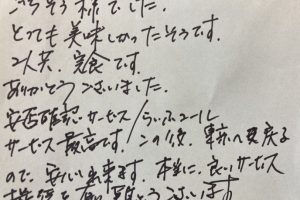 ごちそう様でした。
とても美味しかったそうです。
2人共、完食です。
ありがとうございました。
安否確認サービス/らいふコール
サービス最高です。この後、東京へ戻る
ので、安心出来ます。本当に良いサービス
ございます